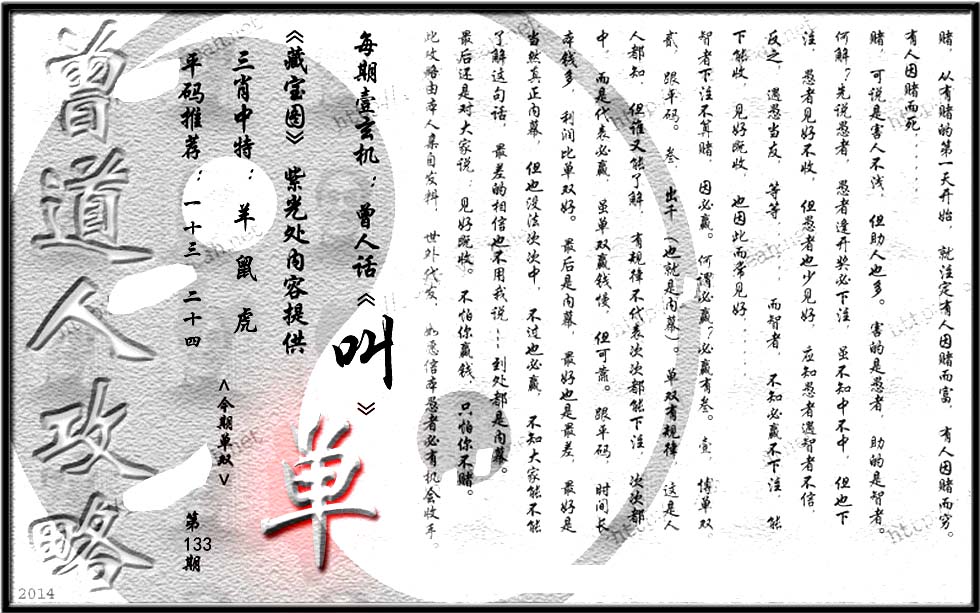 赌，从有赌的第一天开始，就注定有人因赌而富，有人因赌而穷。
有人因赌而死......
赌，可说是害人不浅，但助人也多。害的是愚者，助的是智者。
何解？先说愚者，愚者逢开奖必下注，虽不知中不中，但也下
注，愚者见好不收，但愚者也少见好，应知愚者遇智者不信，
反之，遇愚当友，等等......，而智者，不知必赢不下注，能
下能收，见好既收，也因此而常见好......
智者下注不算赌，因必赢。何谓必赢？必赢有叁。壹，博单双，
贰，跟平码。叁，出千（也就是内幕）。单双有规律，这是人
人都知，但谁又能了解，有规律不代表次次都能下注，次次都
中，而是代表必赢，虽单双赢钱慢，但可靠。跟平码，时间长
本钱多，利润比单双好。最后是内幕，最好也是最差，最好是
当然真正内幕，但也没法次次中，不过也必赢，不知大家能不能
了解这句话，最差的相信也不用我说--到处都是内幕。
最后还是对大家说：见好既收。不怕你赢钱，只怕你不赌。
此攻略由本人集自发料，世外代友，如愿信本愚者必有机会收手。
每期壹玄机：曾人话《叫》
《藏宝图》紫光处内容提供
三肖中特：羊 鼠 虎
平码推荐：一十三 二十四
<今期单双>
单
第133期
曾道人攻略
2014